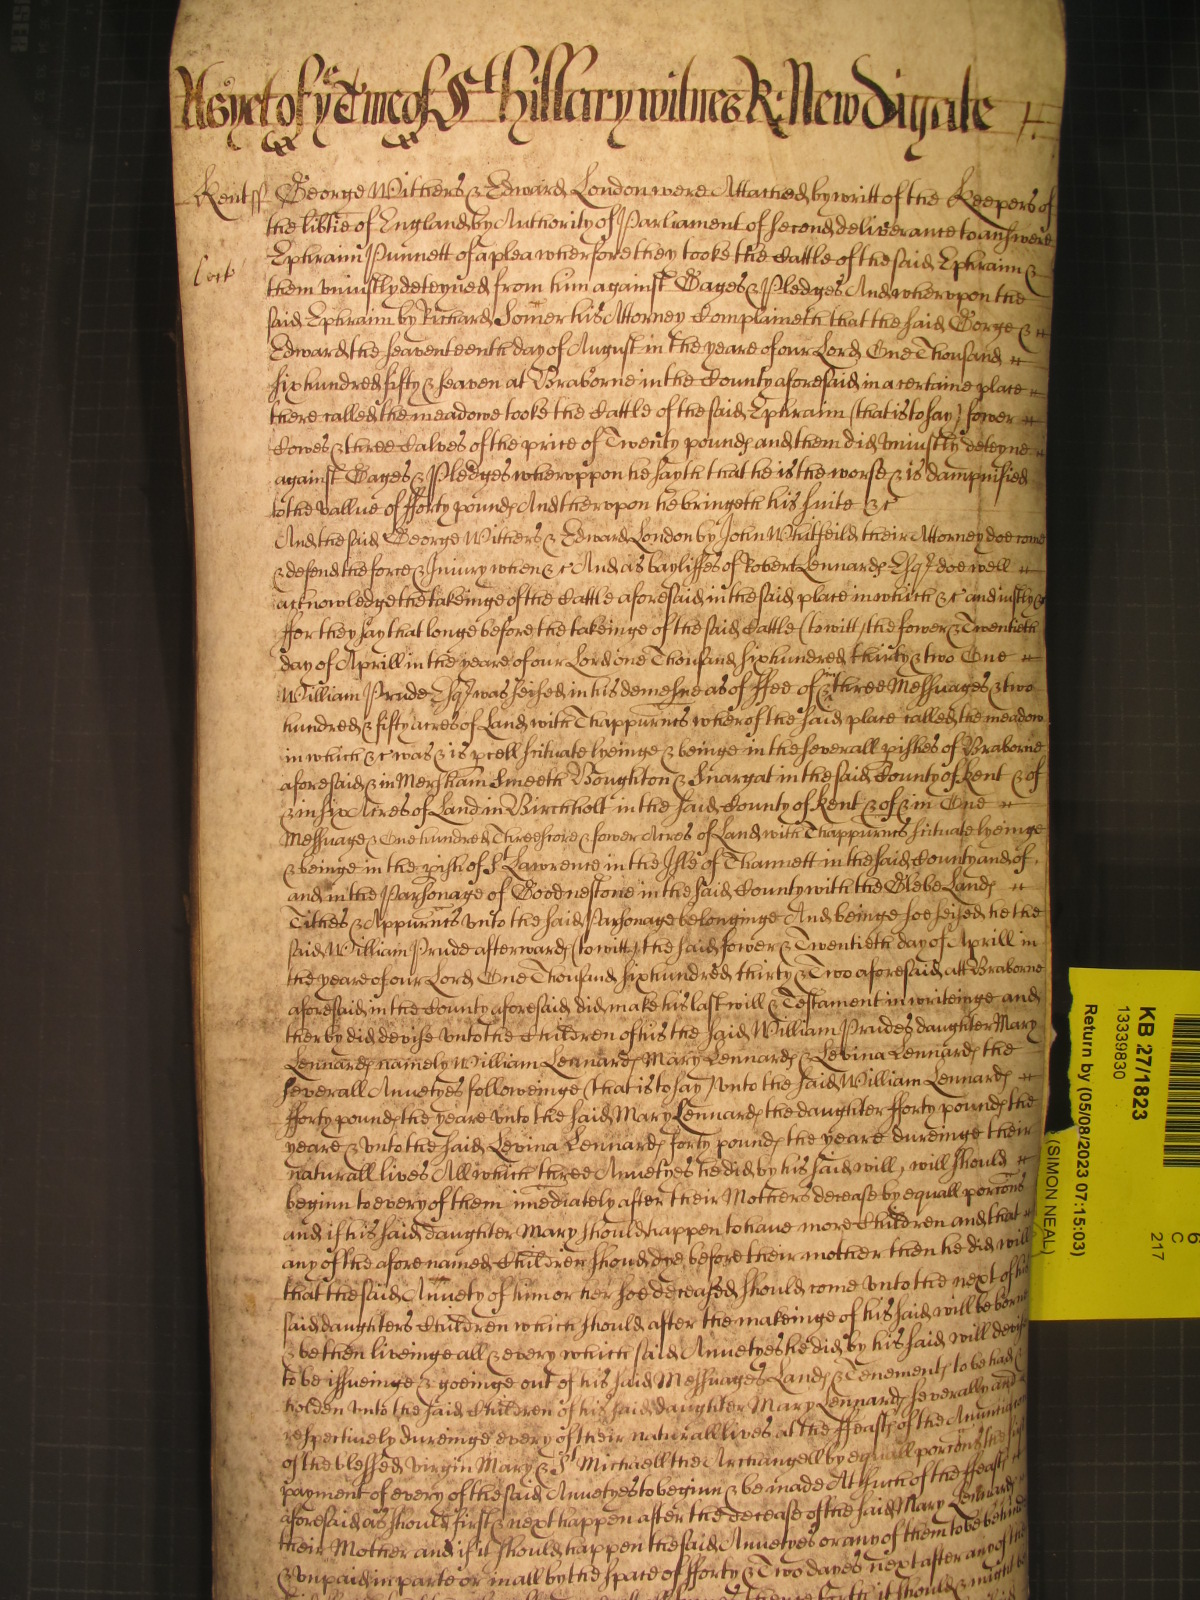 As yet of ye Time of St Hillary witnes R: Newdigate
Kent ss George Withers & Edward London were Attached by writt of the Keepers of
the libtie of England by Authority of Parliament of second deliverance to answere
Cert
Ephraim Punnett of a plea wherfore they tooke the Cattle of the said Ephraim &
them uniustly deteyned from him against Gages & Pledges And wherupon the
said Ephraim by Richard Somer his Attorney Complaineth that the said George &
Edward the seaventeenth day of August in the yeare of our Lord One Thousand
six hundred fifty & seaven at Braborne in the County aforesaid in a certaine place
there called the meadowe tooke the Cattle of the said Ephraim (that is to say) fower
Cowes & three Calves of the price of Twenty pounds and them did uniustly deteyne
against Gages & Pledges wheruppon he sayth that he is the worse & is dampnified
to the vallue of fforty pounds And therupon he bringeth his suite &c
And the said George Withers & Edward London by John Whitfeild their Attorney doe come
& defend the force & Iniury when &c And as bayliffes of Robert Lennard Esqr doe well
acknowledge the takeinge of the Cattle aforesaid in the said place in which &c and iustly &c
ffor they say that longe before the takeinge of the said Cattle (to witt) the fower & Twentieth
day of Aprill in the yeare of our Lord one Thousand six hundred thirty & two One
William Prude Esqr was seised in his demesne as of ffee of & in three Messuages & two
hundred & fifty acres of Land with Thappurtn̄cs wherof the said place called the meadow
in which &c was & is pcell scituate lyeinge & beinge in the severall pishes of Braborne
aforesaid & in Mersham Smeeth Boughton & Snargat in the said County of Kent & of
& in six Acres of Land in Birchholt in the said County of Kent & of & in One
Messuage & One hundred Threescore & fower Acres of Land with Thappurtn̄cs scituate lyeinge
& beinge in the pish of St Lawrence in the Isle of Thannett in the said County and of
and in the Parsonage of Goodnestone in the said County with the Glebe Lands
Tithes & Appurtn̄cs unto the said Parsonage belonginge And beinge soe seised he the
said William Prude afterwards (to witt) the said fower & Twentieth day of Aprill in
the yeare of our Lord One Thousand six hundred thirty & Two aforesaid att Braborne
aforesaid in the County aforesaid did make his last will & Testament in writeinge and
therby did devise unto the Children of his the said William Prudes daughter Mary
Lennard namely William Lennard Mary Lennard & Levina Lennard the
severall Anuetyes followeinge (that is to say) unto the said William Lennard
fforty pounds the yeare unto the said Mary Lennard the daughter fforty pounds the
yeare & unto the said Levina Lennard forty pounds the yeare dureinge their
naturall lives All which three Anuetyes he did by his said will, will should
beginn to every of them imediately after their Mothers decease by equall porcōns
and if his said daughter Mary should happen to have more Children and that
any of the afore named Children should dye before their mother then he did will
that the said Anuety of him or her soe deceased should come unto the next of his
said daughters Children which should after the makeinge of his said will be borne
& be then liveinge all & every which said Anuetyes he did by his said will devise
to be issueinge & goeinge out of his said Messuages Lands & Tenements to be had &
holden unto the said Children of his said daughter Mary Lennard severally and
respectively dureinge every of their naturall lives at the ffeasts of the Anunciacōn
of the blessed virgin Mary & St Michaell the Archangell by equall porcōns the first
payment of every of the said Anuetyes to beginn & be made At such of the ffeasts
aforesaid as should first & next happen after the decease of the said Mary Lennard
their Mother and if it should happen the said Anuetyes or any of them to be behinde
& unpaid in parte or in all by the space of fforty & Two dayes next after any of the
it should & might
KB 27/1823
13339830
Return by (05/08/2023 07:15:03)
(SIMON NEAL)
6
C
217